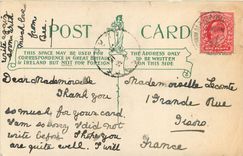 POST CARD
THIS SPACE MAY BE USED FOR
CORRESPONDENCE IN GREAT BRITAIN
& IRELAND BUT NOT FOR FOREIGN
THE ADDRESS ONLY
TO BE WRITTEN
ON THIS SIDE
write again
soon with
much love
from
Dear Mademoiselle
Thank you
so much for your card.
I am so sorry I did not
write before. I hope you
are quite well. I will
Mademoiselle Lecomte
1 Grande Rue
France